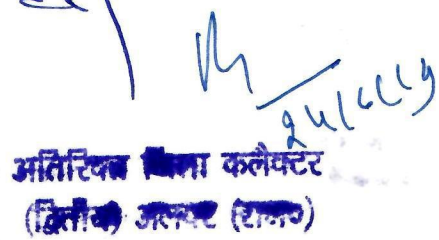 24/6/19
अतिरिक्त जिला कलैक्टर
(द्वितीय) अलवर (राज०)